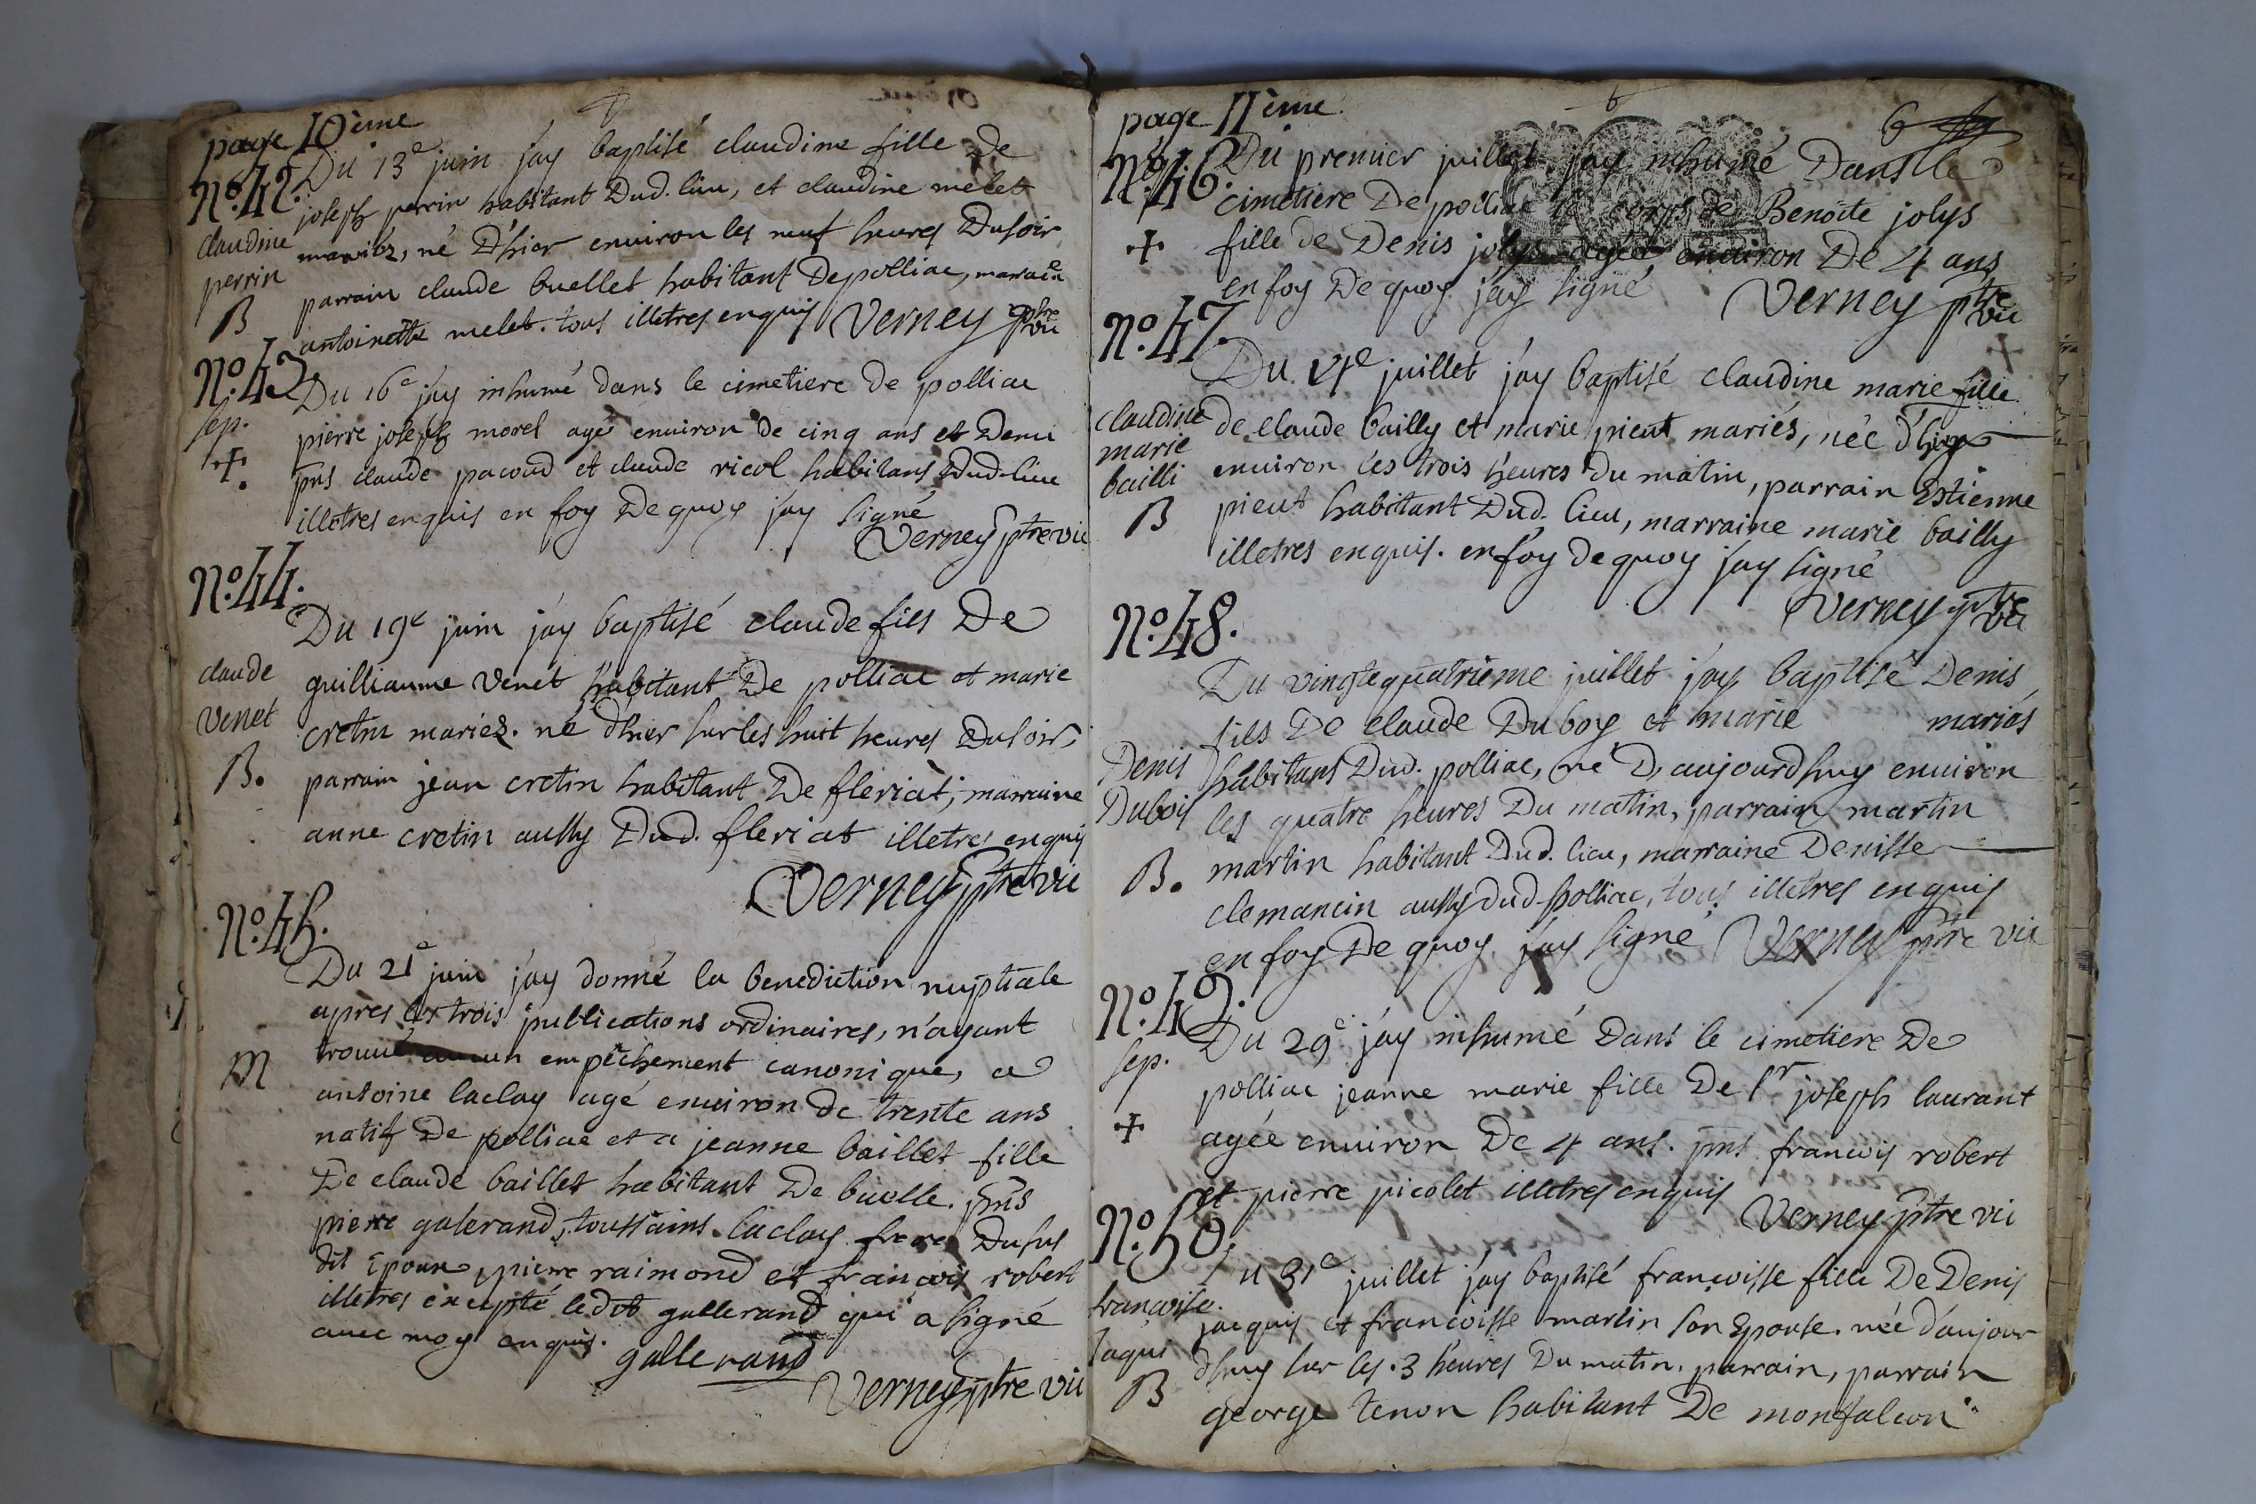 page 10ème
N°.42. Du 13e juin jay baptisé claudine fille de
joseph perrin habitant Dud. lieu, et claudine melet
claudine mariéz, né D'hier environ les neuf heures Dusoir
perrin parrain claude buellet habitant Depolliac, maraine
B antoinette melet. tous illetres enquis Verney ptre vic
N°.43 Du 16e jay inhumé dans le cimetiere de polliac
sep. pierre joseph morel agé environ de cinq ans et Demi
+. pns claude pacoud et claude ricol habitans Dud. lieu
illetres enquis en foy De quoy jay signé
Verney ptre vic
N°.44.
Du 19e juin jay baptisé claude fils De
claude guilliaume venet habitant De polliac et marie
venet cretin mariéz. né d'hier sur les huit heures Dusoir,
B. parrain jean cretin habitant De fleriat, marraine
anne cretin aussy Dud. fleriat illetres enquis
Verney ptre vic
N°.45.
Du 21e juin jay donné la benediction nuptiale
apres les trois publications ordinaires, n'ayant
M trouvé aucun empêchement canonique, a
antoine laclay agé environ de trente ans
natif De polliac et a jeanne baillet fille
De claude baillet habitant De buelle. pns
pierre galerand, toussains laclay frere Dusus
dit Epoux, pierre raimond et françois robert
illetres excepté ledit gallerand qui a signé
avec moy enquis.
gallerand
Verney ptre vic
page 11ème
6
N°.46. Du premier juillet jay inhumé Dans le
cimetiere De polliac le corps de Benoite jolys
+ fille de Denis jolys agée environ De 4 ans
en foy De quoy jay signé Verney ptre vic
N°.47.
Du 4e juillet jay baptisé claudine marie fille
claudine de claude bailly et marie pieut mariés, née d'hier
marie environ les trois heures du matin, parrain Estienne
bailli pieut habitant Dud. lieu, marraine marie bailly
B illetres enquis. en foy de quoy jay signé
Verney ptre vic
N°.48.
Du vingtequatrieme juillet jay baptisé Denis
fils De claude Duboy et marie mariés
Denis habitans Dud. polliac, né D'aujourdhuy environ
Dubois les quatre heures Du matin, parrain martin
B. martin habitant Dud. lieu, marraine Denisse
clemancin aussy dud. polliac, tous illetres enquis
en foy De quoy jay signé Verney ptre vic
N°.49.
sep. Du 29e jay inhumé dans le cimetiere De
polliac jeanne marie fille De sr joseph laurant
+ agée environ De 4 ans. pns françois robert
et pierre picolet illetres enquis
Verney ptre vic
N°.50.
Du 31e juillet jay baptisé françoisse fille De Denis
françoise. jacquis et françoisse martin son Epouse. née d'aujour
Jaqui dhuy sur les 3 heures Du matin. parrain, parrain
B george tenon habitant De monfalcon